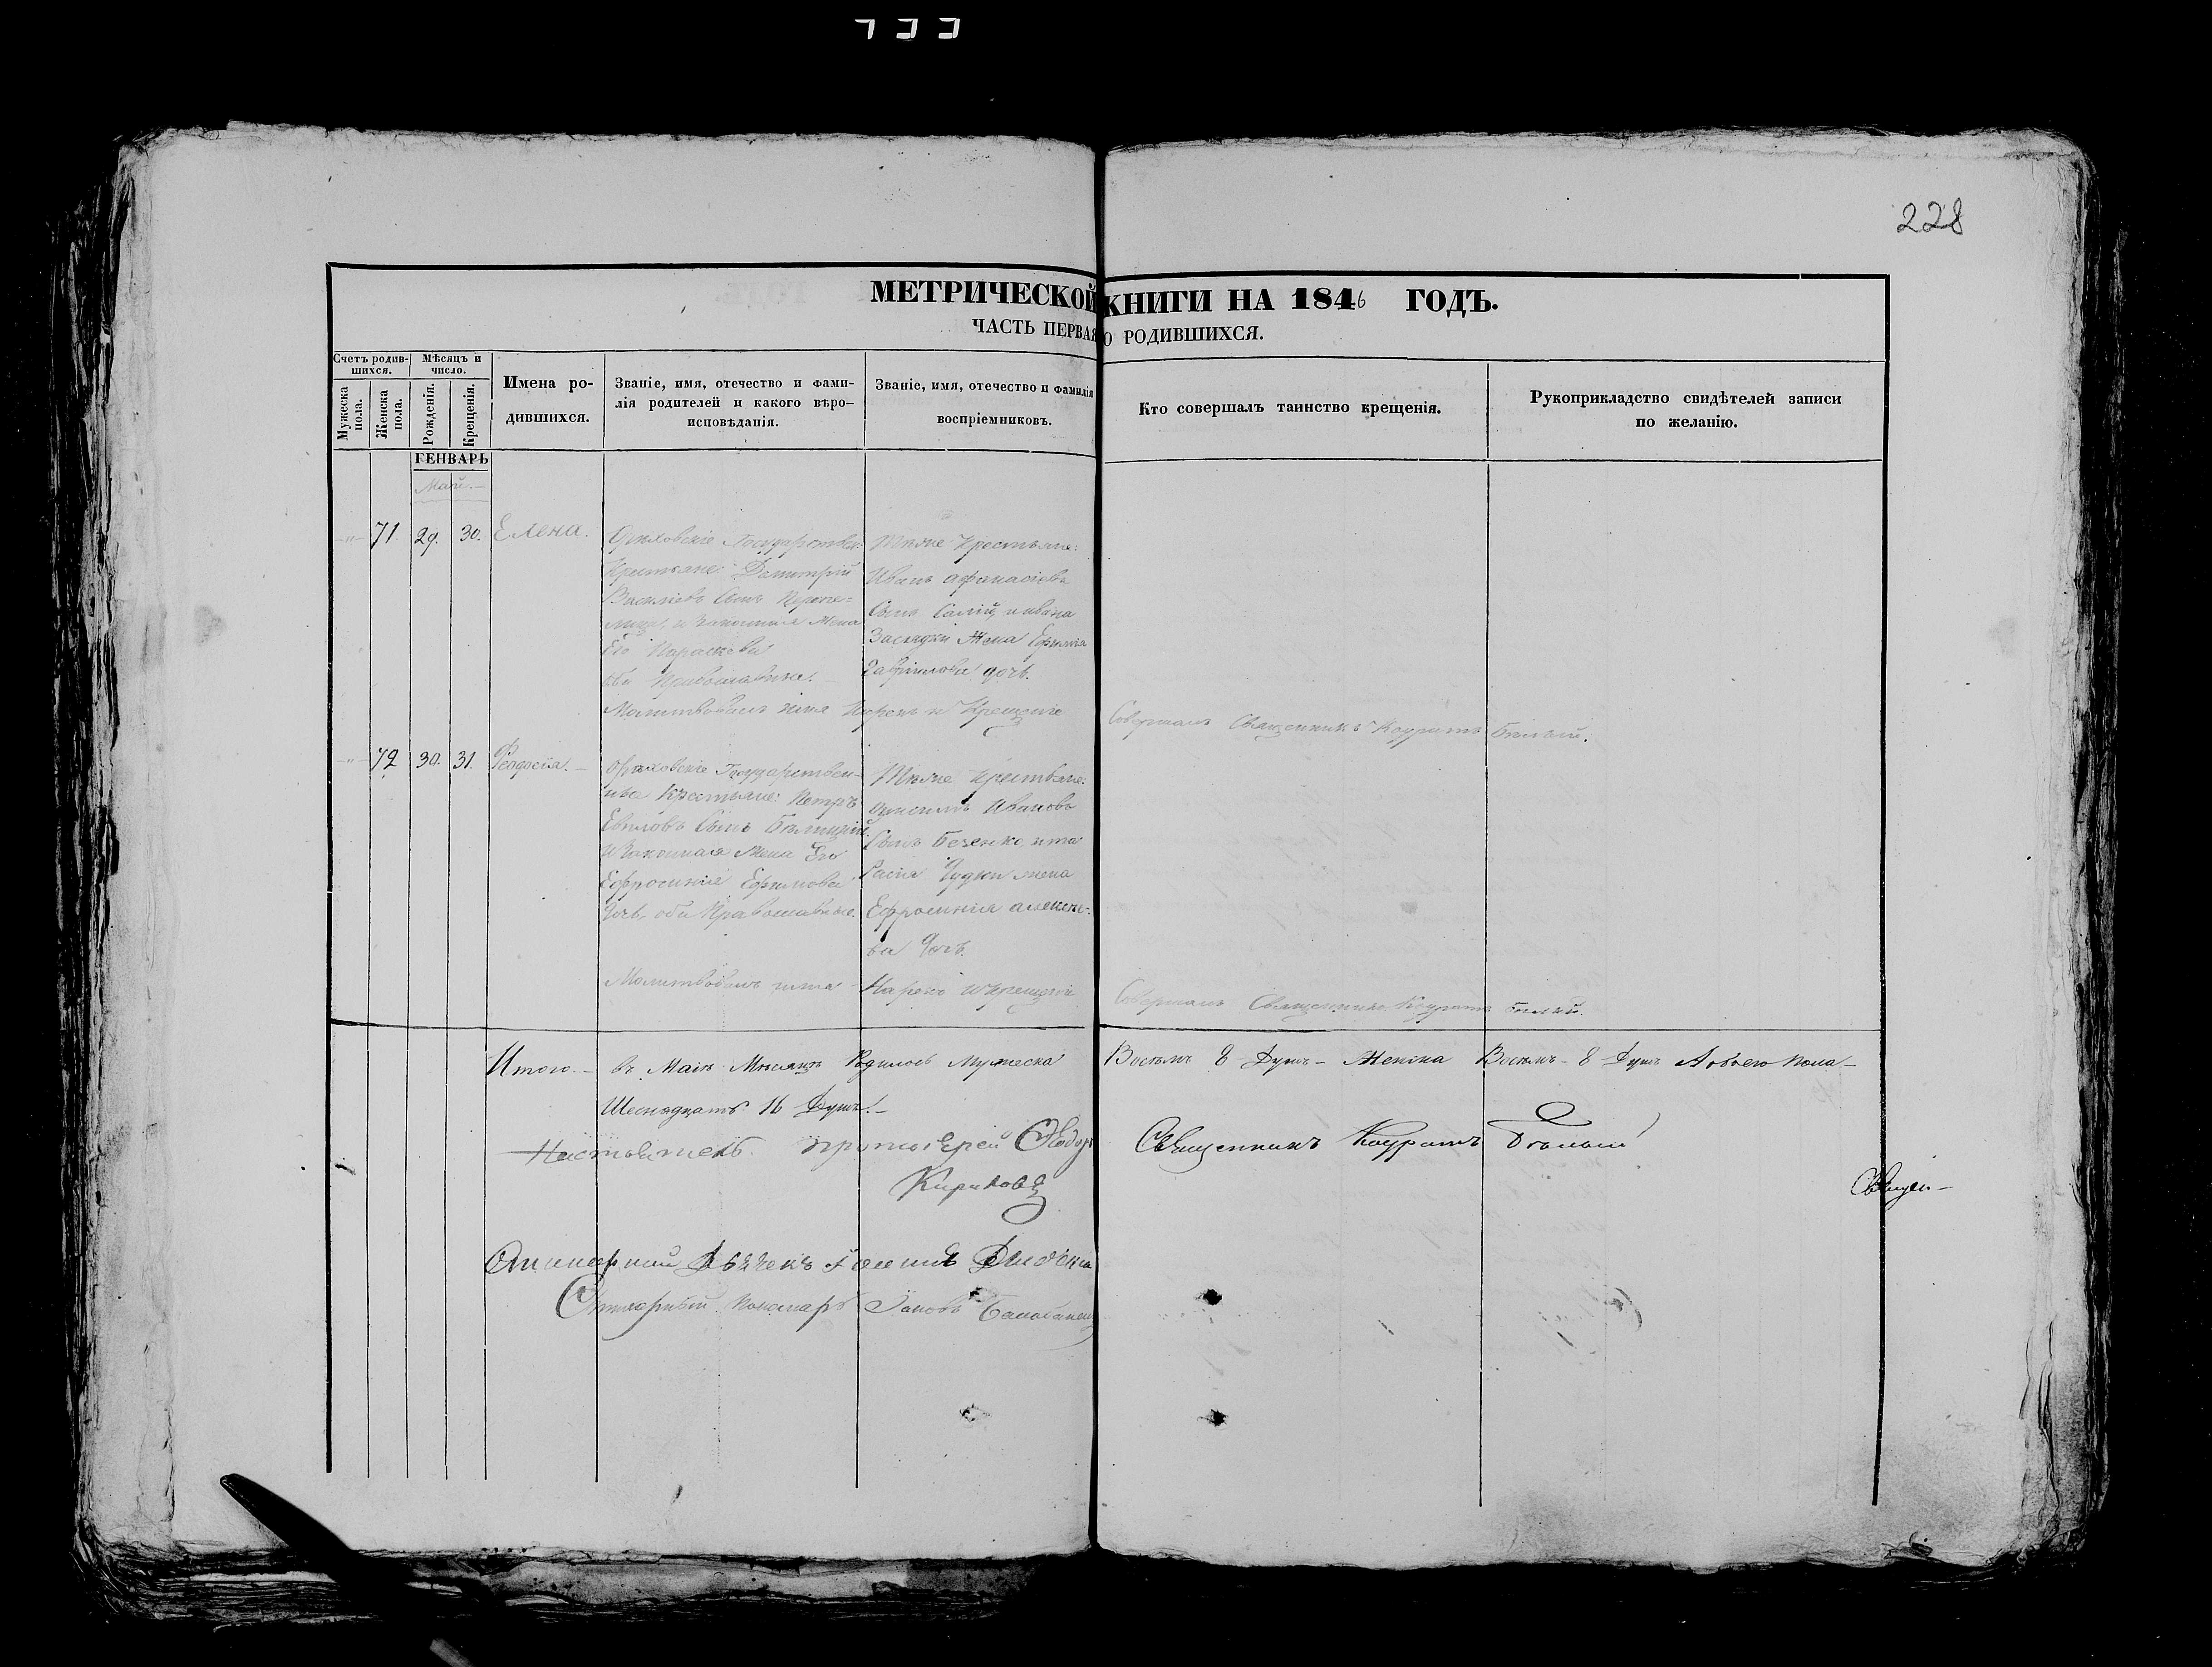 228
МЕТРИЧЕСКОЙ КНИГИ НА 1846 ГОДЪ.
ЧАСТЬ ПЕРВАЯ О РОДИВШИХСЯ.
Счетъ родив-
шихся.
Мѣсяцъ и
число.
Мужеска пола.
Женска пола.
Рожденія.
Крещенія.
Имена ро-
дившихся.
Званіе, имя, отечество и фами-
лія родителей и какого вѣро-
исповѣданія.
Званіе, имя, отечество и фамилія
воспріемниковъ.
Кто совершалъ таинство крещенія.
Рукоприкладство свидѣтелей записи
по желанію.
ГЕНВАРЬ
Май.
71. 29. 30. Елена.
Орѣховскіе Государствен:
Крестьяне: Димитрій
Василіевъ Сынъ
и Законная Жена
Его Параскева
оба Православные.
Тѣже Крестьяне:
Иванъ Афанасіевъ
Сынъ Салій, и Ивана
Засядки Жена Ефимія
Гавріилова дочь.
Молитвовалъ имя Нарекъ и Крещеніе
Совершалъ Священникъ Кодратъ Бѣлый.
72 30. 31. Феодосія.
Орѣховскіе Государствен-
ные Крестьяне: Петръ
Сынъ
и Законная Жена Его
Ефросинія Ефимова
дочь, оба Православные.
Тѣже Крестьяне:
Иванов
Сынъ Безенко, и та
жена
Ефросинія алексѣе:
ва дочь.
Молитвовалъ имя Нарекъ и Крещеніе
Совершалъ Священникъ Кодратъ Бѣлый.
Итого. въ Маіѣ Мѣсяцѣ Родилось Мужеска Восѣмъ 8 Душъ – Женска Восѣмъ – 8 Душъ А обоего пола –
Шеснадцать 16 Душъ. –
Настоятель протоіерей Феодоръ
Кириловъ
Священникъ Кодратъ Бѣлый
Священ-
Стихарный Дьячекъ
Стихарный Пономарь Іаковъ